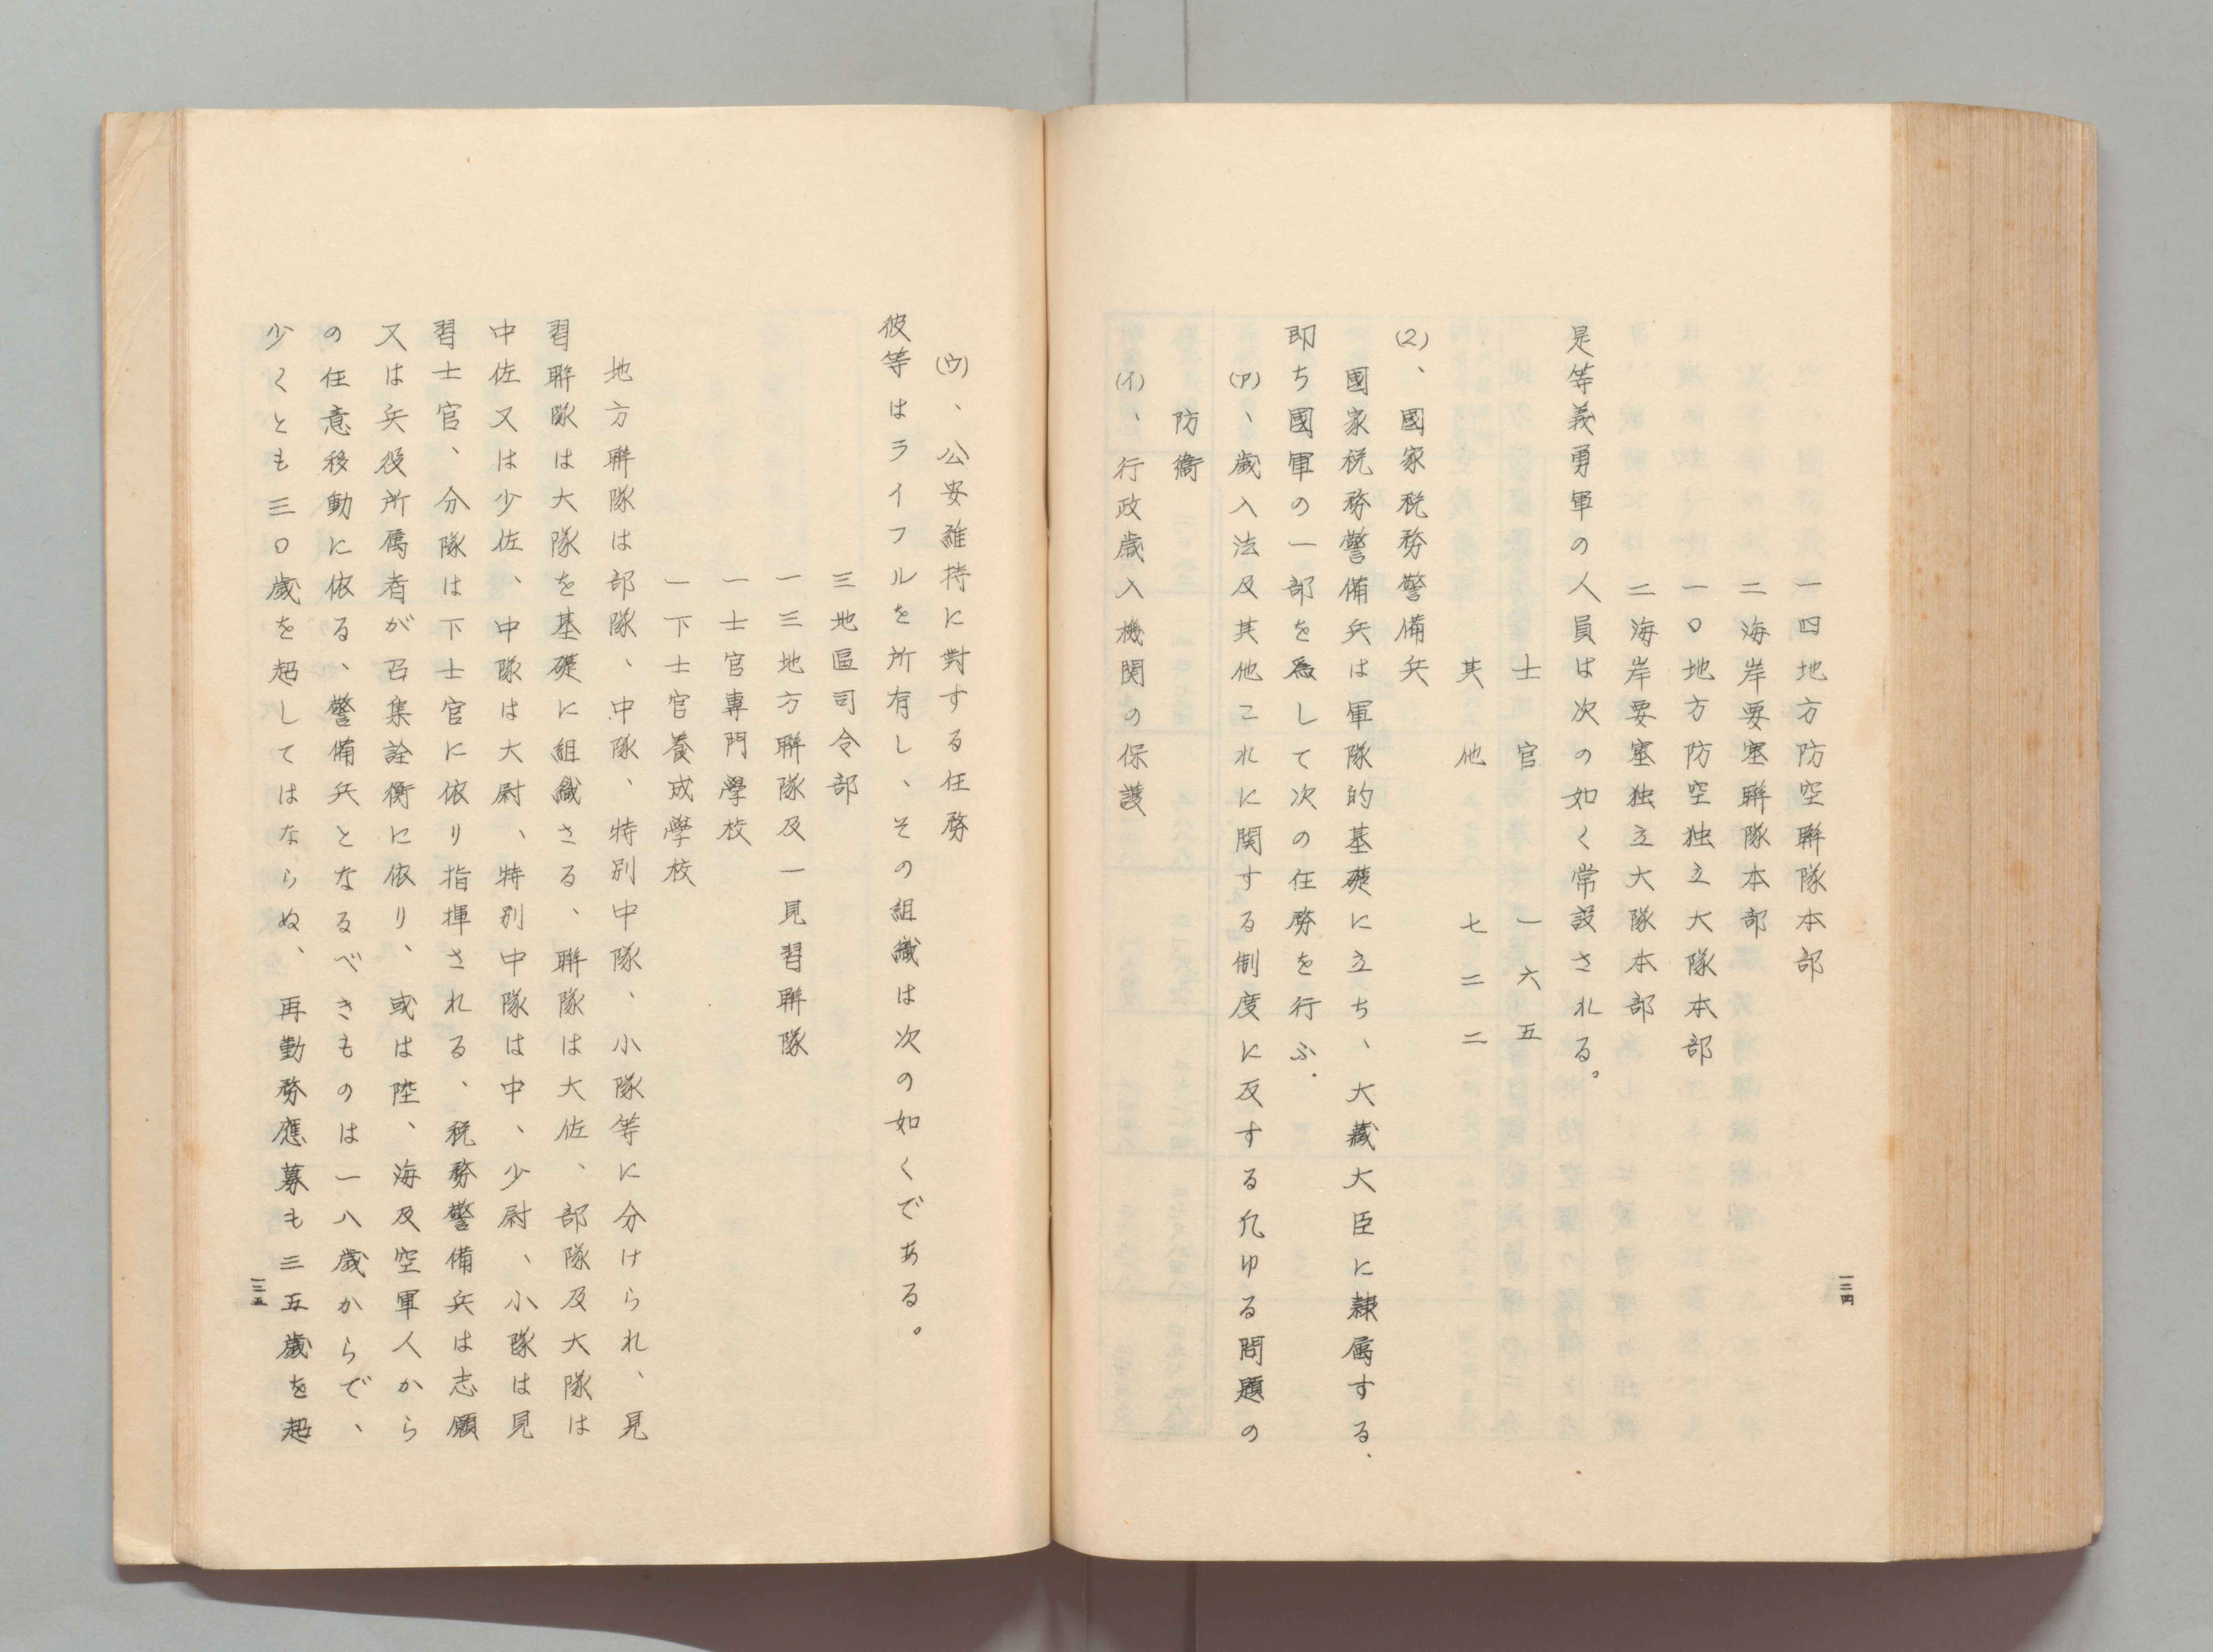 一四地方防空聯隊本部
二海岸要塞聯隊本部
一〇地方防空独立大隊本部
二海岸要塞独立大隊本部
是等義勇軍の人員は次の如く常設される。
士官　一六五
其他　七二二
(2)、國家税務警備兵
國家税務警備兵は軍隊的基礎に立ち、大藏大臣に隷属する.
即ち國軍の一部を爲して次の任務を行ふ.
(ア)、歲入法及其他これに関する制度に反する凡ゆる問題の
防衞
(イ)、行政歲入機関の保護
一三四
(ウ)、公安維持に對する任務
彼等はライフルを所有し、その組織は次の如くである。
三地區司令部
一三地方聯隊及一見習聯隊
一士官專門學校
一下士官養成學校
地方聯隊は部隊、中隊、特別中隊、小隊等に分けられ、見
習聯隊は大隊を基礎に組織さる、聯隊は大佐、部隊及大隊は
中佐又は少佐、中隊は大尉、特別中隊は中、少尉、小隊は見
習士官、分隊は下士官に依り指揮される、税務警備兵は志願
又は兵役所属者が召集詮衡に依り、或は陸、海及空軍人から
の任意移動に依る、警備兵となるべきものは一八歲からで、
少くとも三〇歲を超してはならぬ、再勤務應募も三五歲を超
一三五